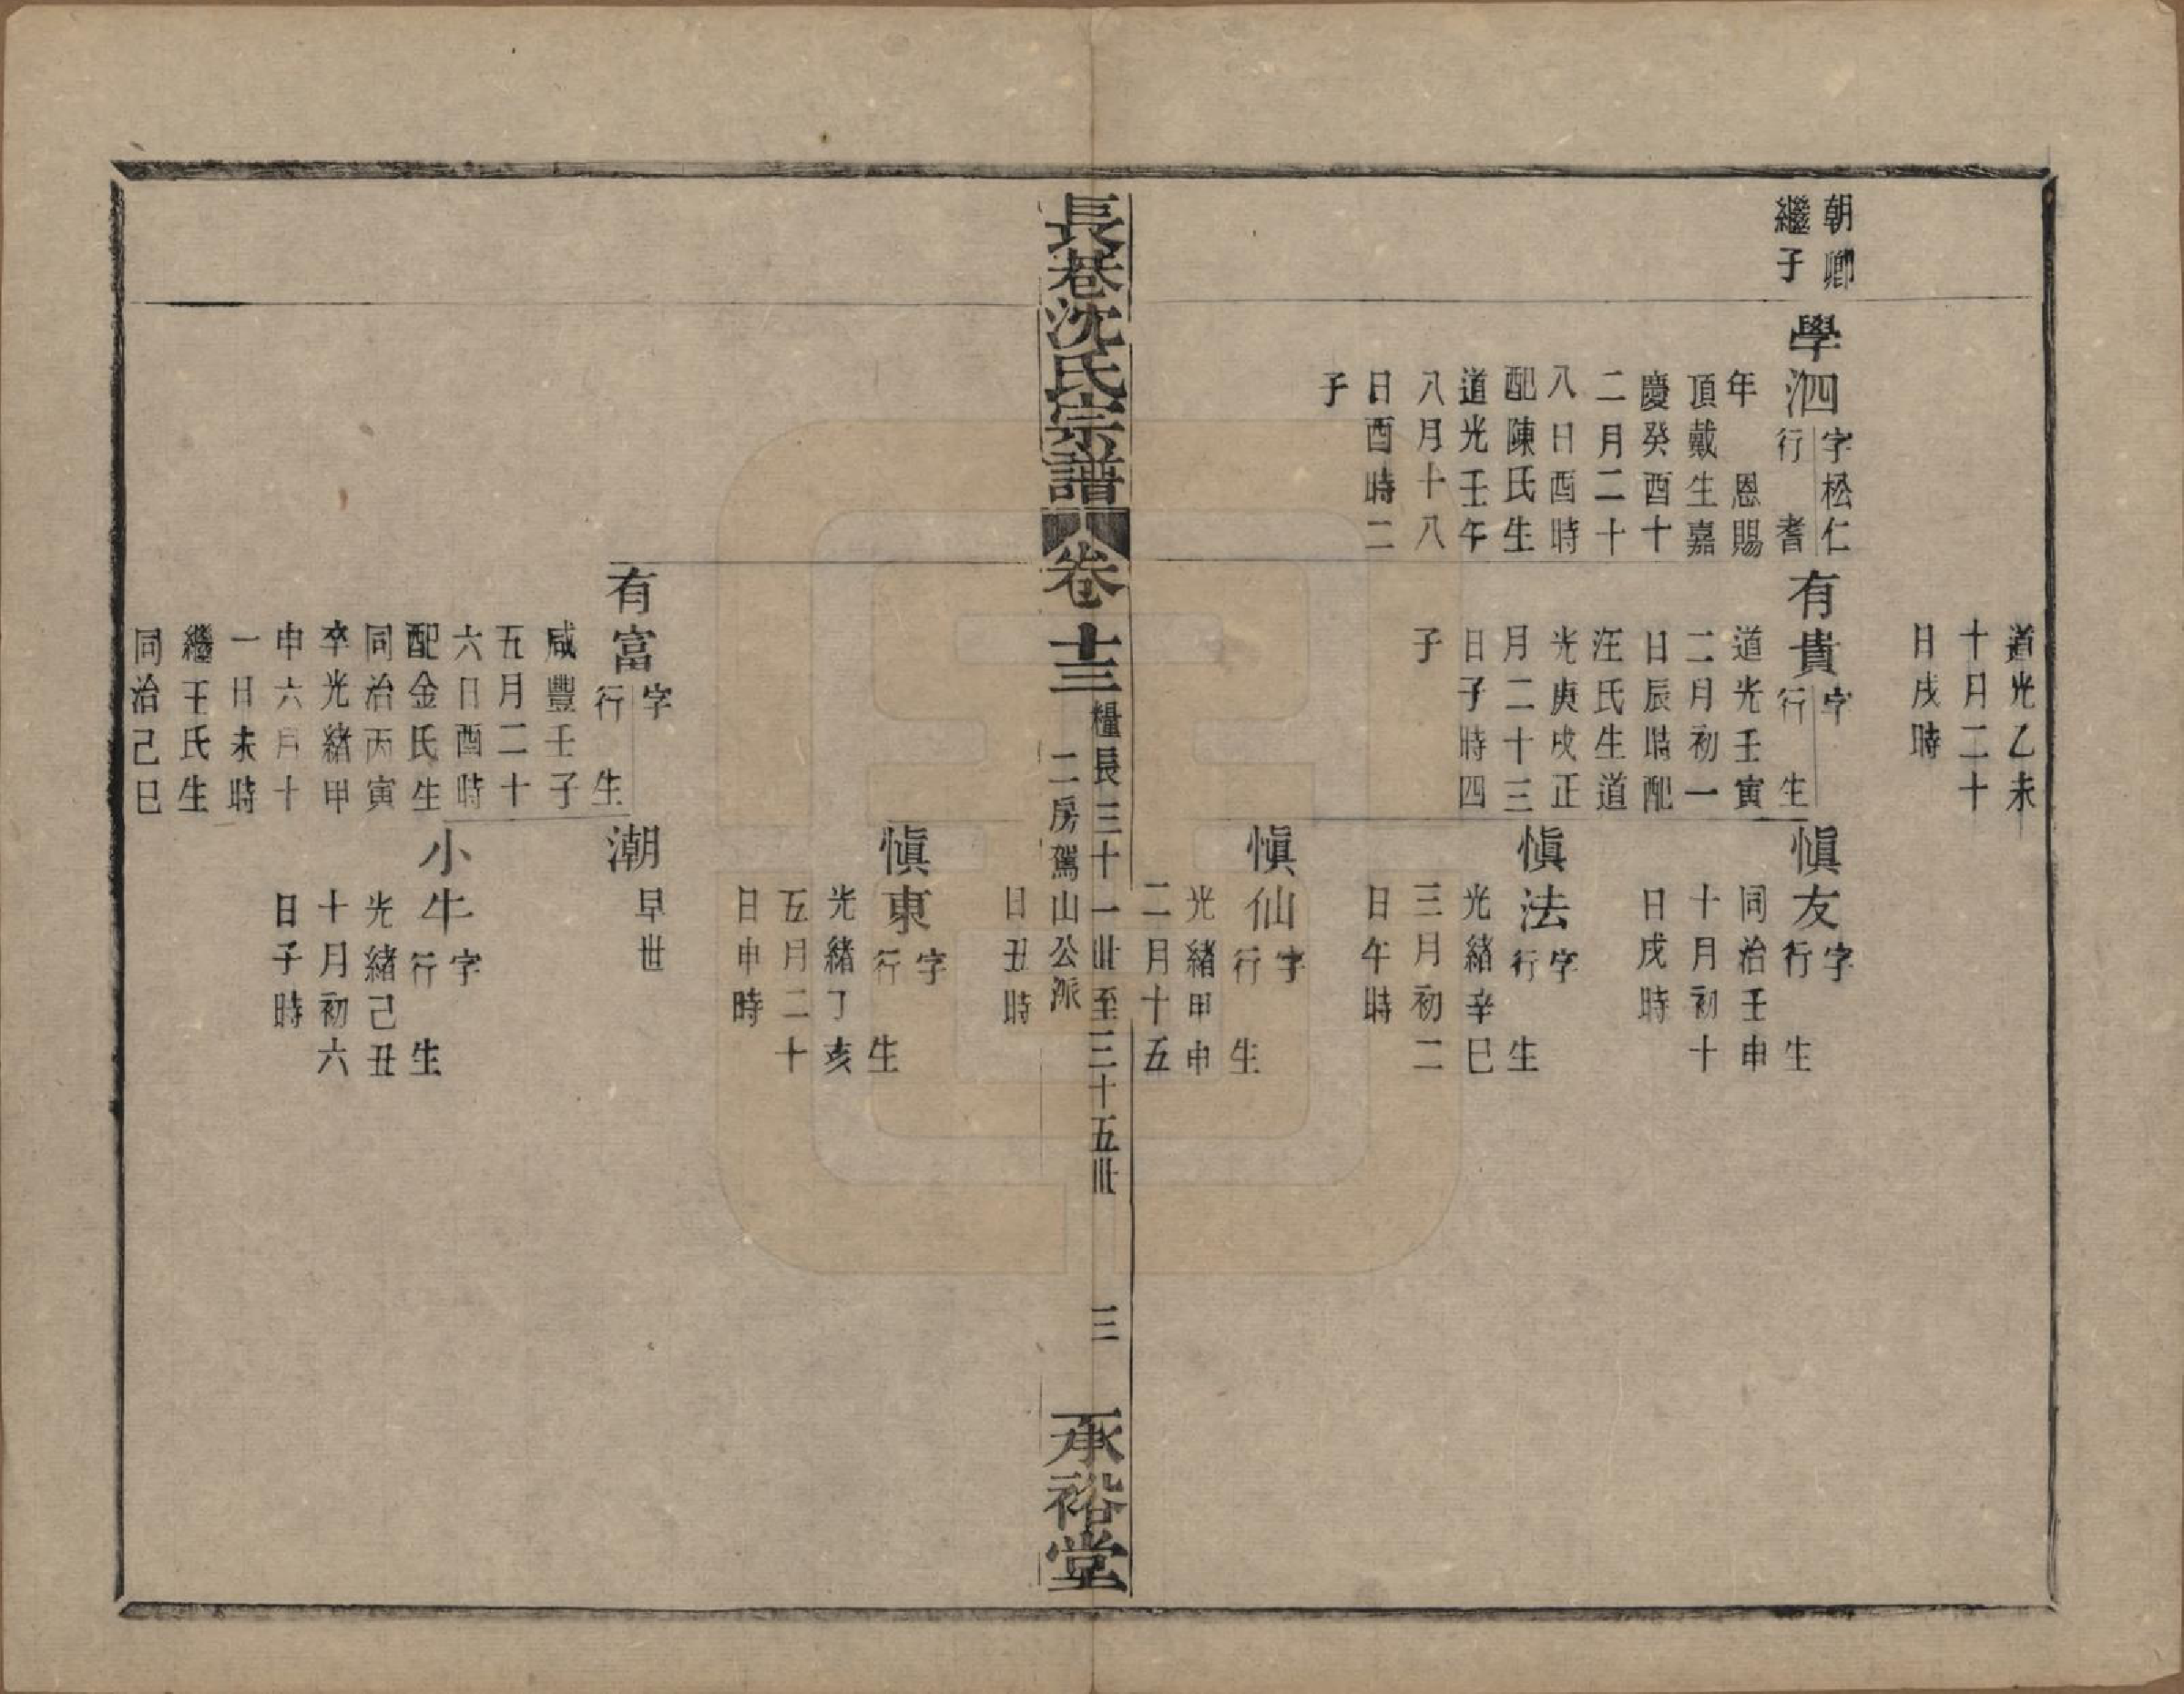 道光乙未
十月二十
日戌時
朝卿
繼子
學泗
字松仁
行　耆
年　恩賜
頂戴生嘉
慶癸酉十
二月二十
八日酉時
配陳氏生
道光壬午
八月十八
日酉時二
子
有貴
字
行　生
道光壬寅
二月初一
日辰時配
汪氏生道
光庚戌正
月二十三
日子時四
子
愼友
字
行　生
同治壬申
十月初十
日戌時
愼法
字
行　生
光緒辛巳
三月初二
日午時
愼仙
字
行　生
光緒甲申
二月十五
長巷沈氏宗譜
卷十三
糧長三十一世至三十五世
二房駕山公派
三
承裕堂
日丑時
愼東
字
行　生
光緒丁亥
五月二十
日申時
有富
字
行　生
咸豐壬子
五月二十
六日酉時
配金氏生
同治丙寅
卒光緒甲
申六月十
一日未時
繼王氏生
同治己巳
潮
早世
小牛
字
行　生
光緒己丑
十月初六
日子時